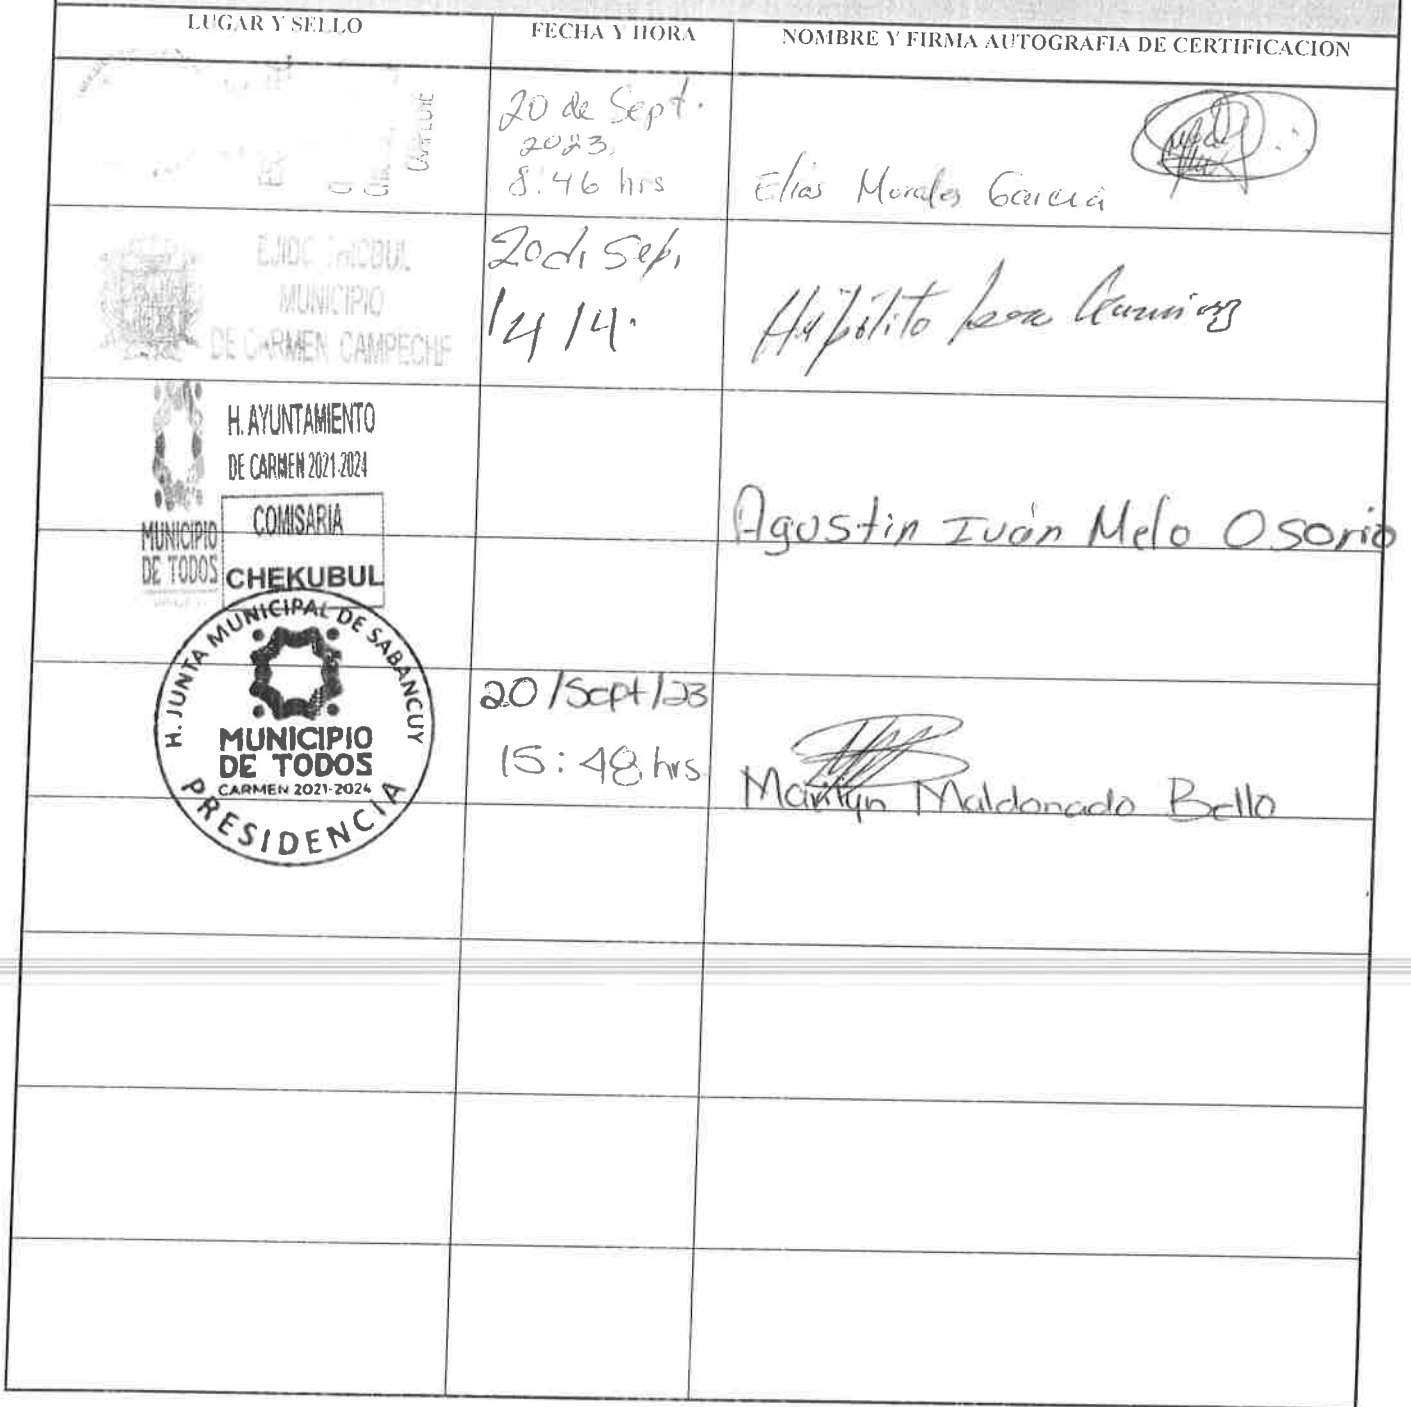 LUGAR Y SELLO
FECHA Y HORA
NOMBRE Y FIRMA AUTOGRAFIA DE CERTIFICACION
20 de Sept.
2023.
8:46 hrs
Elias Morales Garcia
MUNICIPIO
DE CARMEN CAMPECHE
20 di Sep.
14/14.
Hipólito
H. AYUNTAMIENTO
DE CARMEN 2021-2024
COMISARIA
CHEKUBUL
MUNICIPIO
DE TODOS
Agustin Iván Melo Osorio
H. JUNTA MUNICIPAL DE SABANCUY
MUNICIPIO
DE TODOS
CARMEN 2021-2024
PRESIDENCIA
20/Sept/23
15:48 hrs
Marilyn Maldonado Bello